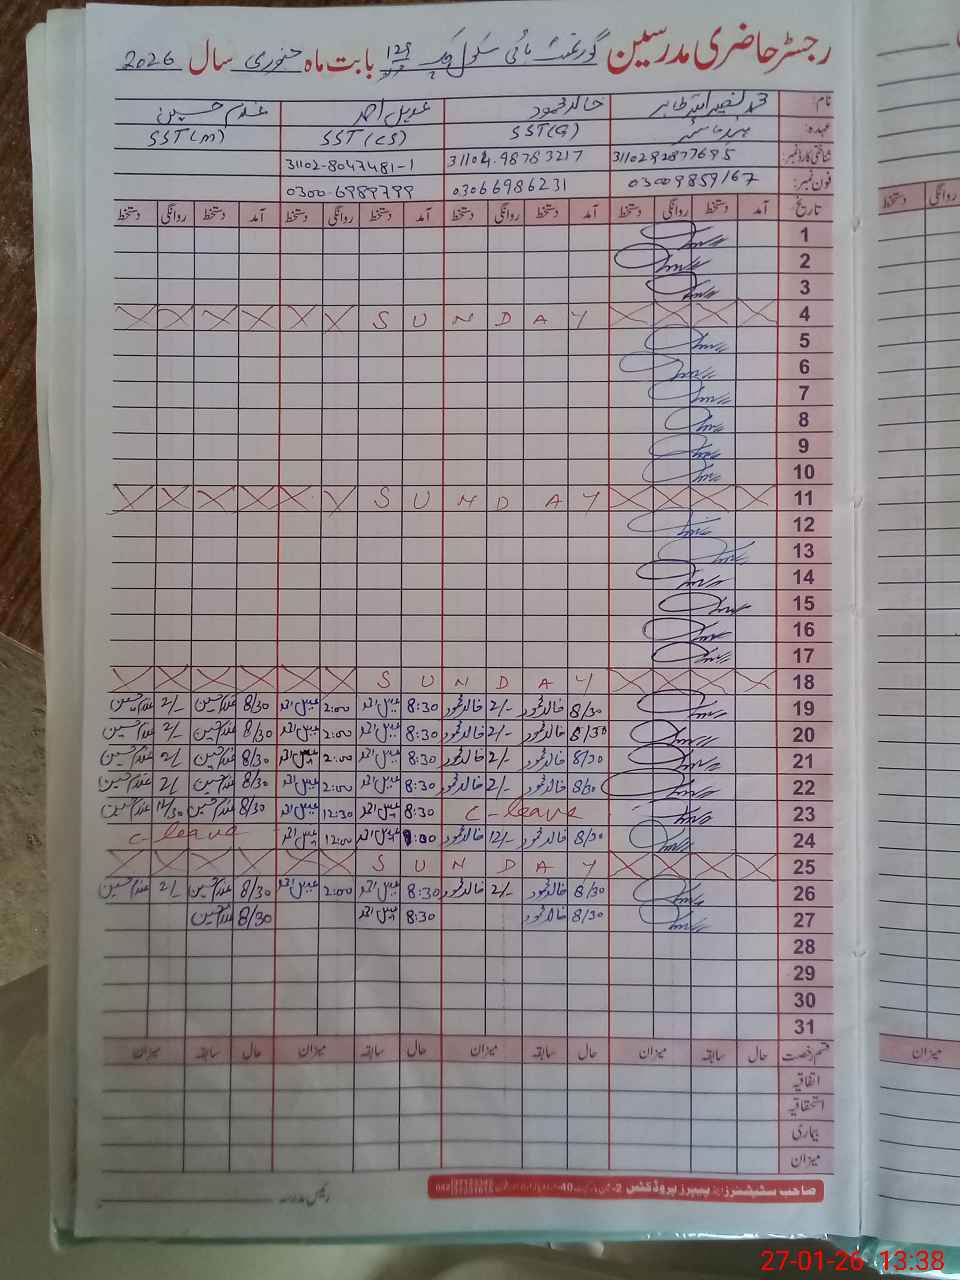 رجسٹر حاضری مدرسین گورنمنٹ ہائی سکول چک 129 بابت ماہ جنوری سال 2026
نام: محمد نصیر اللہ طاہر خالد محمود عدیل احمد غلام حسین
عہدہ: ہیڈ ماسٹر SST(G) SST(CS) SST(M)
شناختی کارڈ نمبر: 31104.98783217 31102-8047481-1
فون نمبر: 03009859167 03066986231 0300-6989799
تاریخ آمد دستخط روانگی دستخط آمد دستخط روانگی دستخط آمد دستخط روانگی دستخط آمد دستخط روانگی دستخط
1
2
3
4 SUNDAY
5
6
7
8
9
10
11 SUNDAY
12
13
14
15
16
17
18 SUNDAY
19 8/30 خالد محمود 2/- خالد محمود 8:30 عدیل احمد 2:00 عدیل احمد 8/30 غلام حسین 2/- غلام حسین
20 8/30 خالد محمود 2/- خالد محمود 8:30 عدیل احمد 2:00 عدیل احمد 8/30 غلام حسین 2/- غلام حسین
21 8/30 خالد محمود 2/- خالد محمود 8:30 عدیل احمد 2:00 عدیل احمد 8/30 غلام حسین 2/- غلام حسین
22 خالد محمود 2/- خالد محمود 8:30 عدیل احمد 2:00 عدیل احمد 8/30 غلام حسین 2/ غلام حسین
23 C-leave 8:30 عدیل احمد 12:30 عدیل احمد 8/30 غلام حسین 12/30 غلام حسین
24 8/30 خالد محمود 12/- خالد محمود عدیل احمد 12:00 عدیل احمد C-leave
25 SUNDAY
26 8/30 خالد محمود 2/- خالد محمود 8:30 عدیل احمد 2:00 عدیل احمد 8/30 غلام حسین 2/- غلام حسین
27 8/30 خالد محمود 8:30 عدیل احمد 8/30 غلام حسین
28
29
30
31
قسم رخصت حال سابقہ میزان حال سابقہ میزان حال سابقہ میزان حال سابقہ میزان
اتفاقیہ
استحقاقیہ
بیماری
میزان
رئیس مدرسہ
27-01-26 13:38